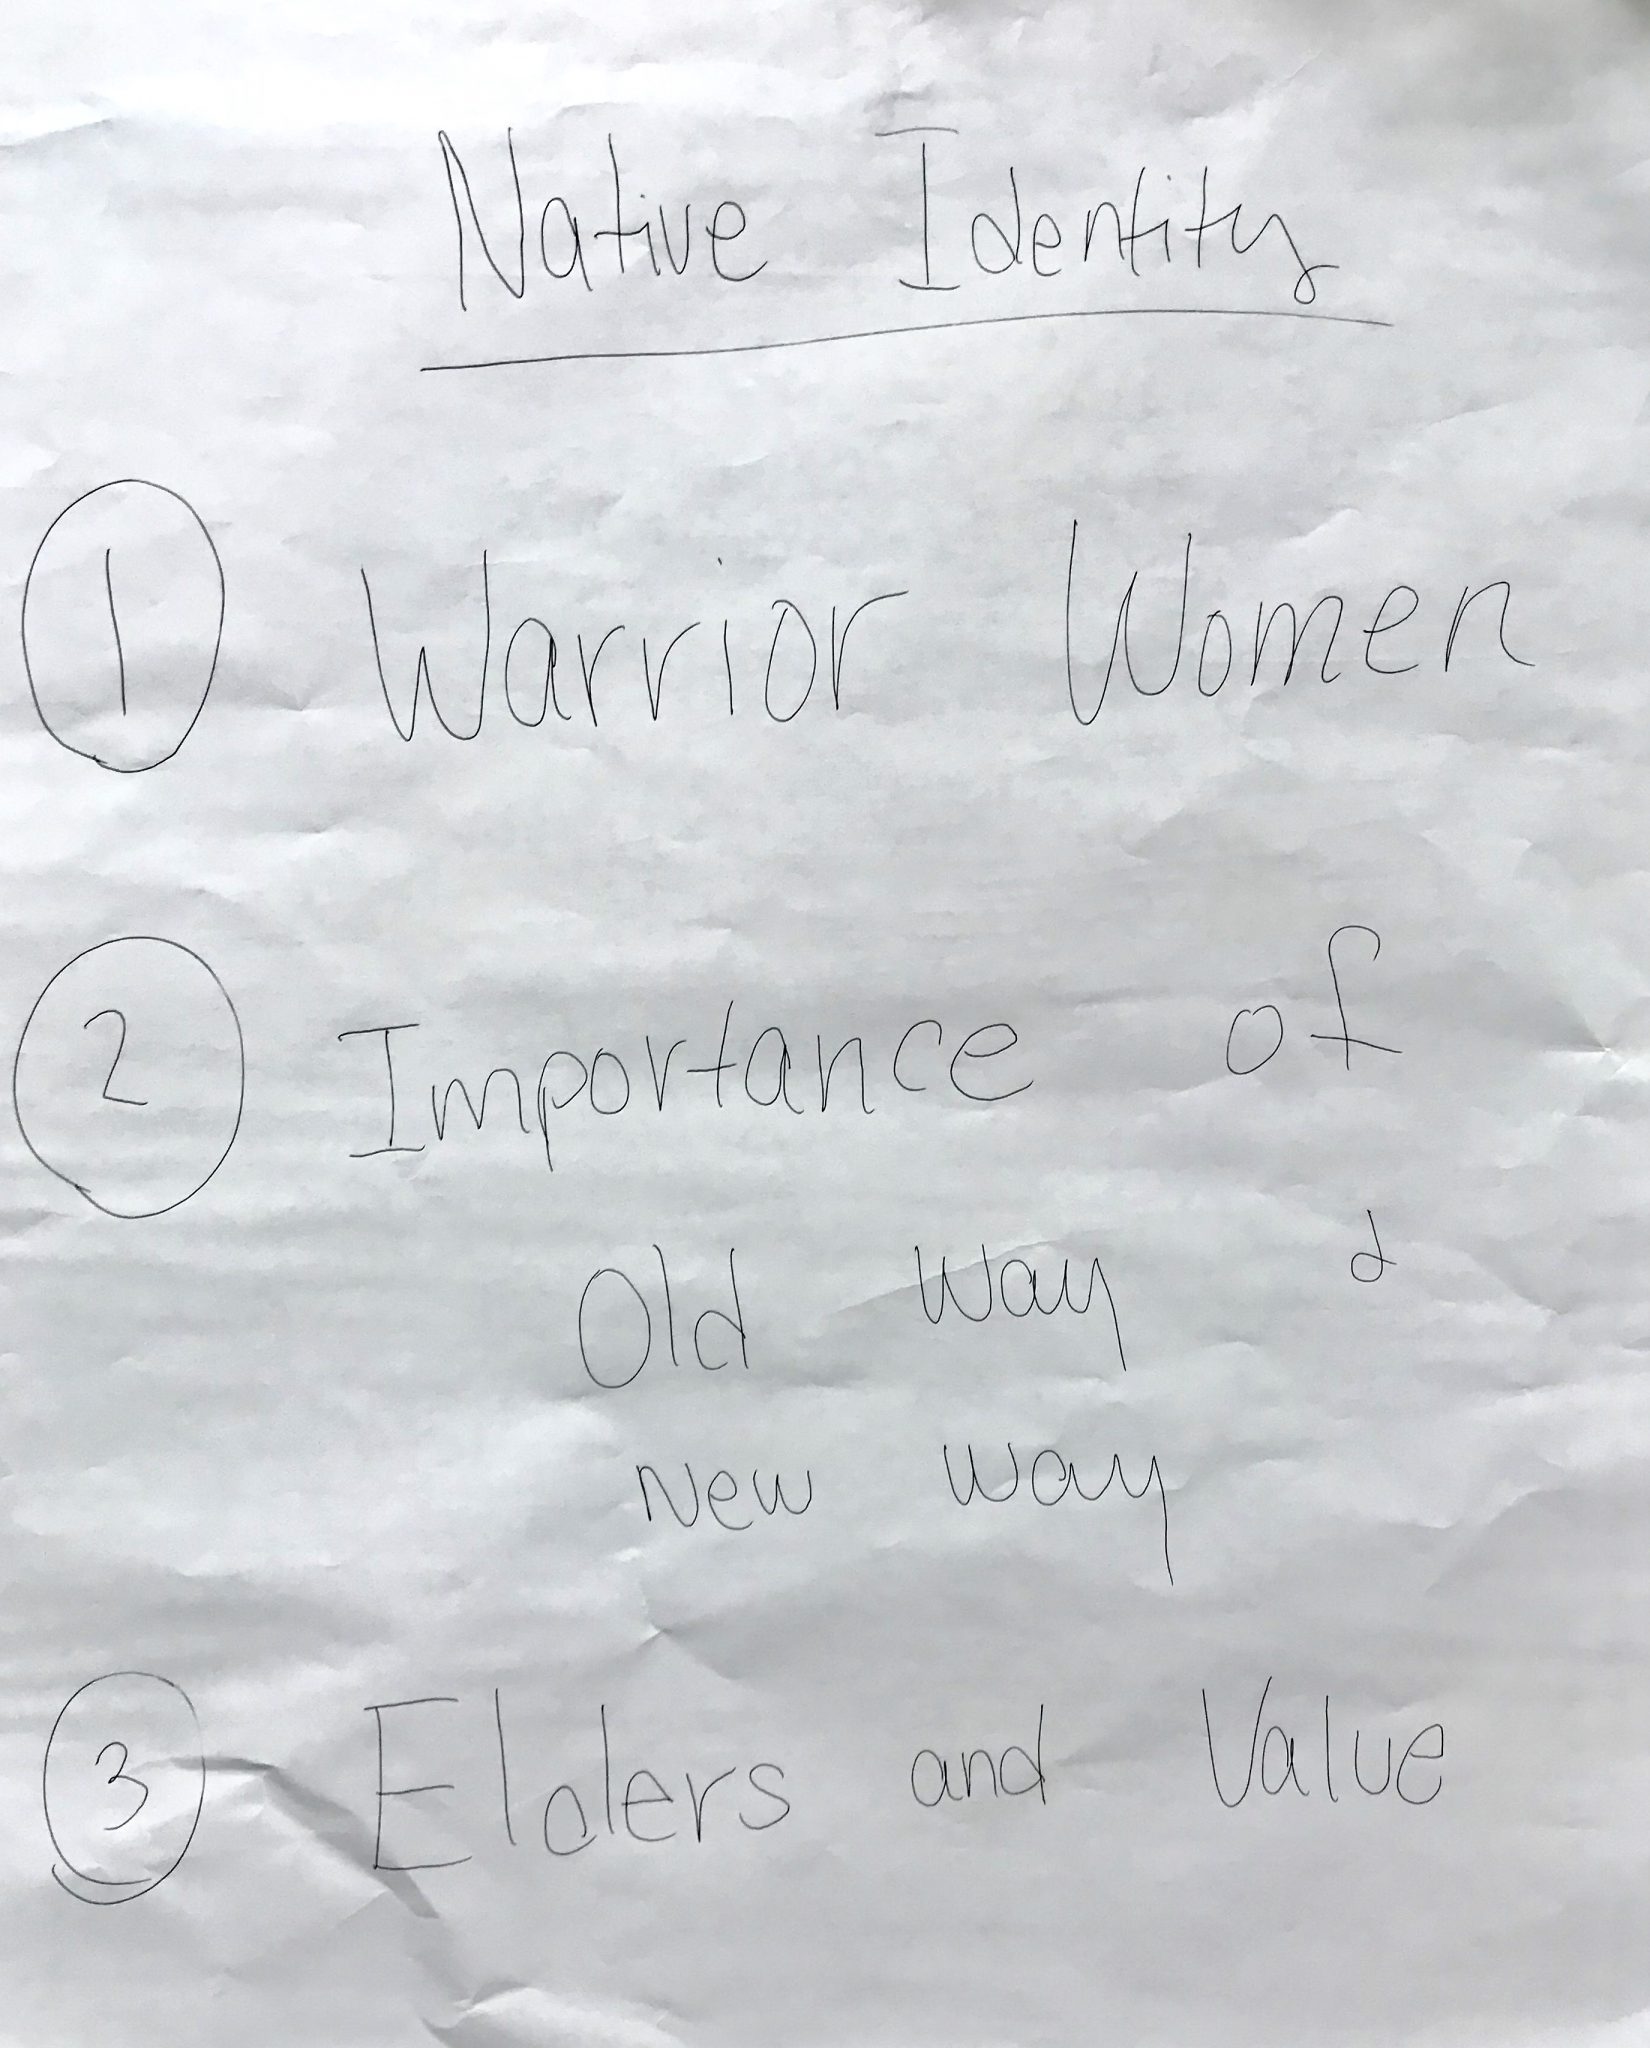 Native Identity
1 Warrior Women
2 Importance of
Old way &
New way
3 Elders and Value